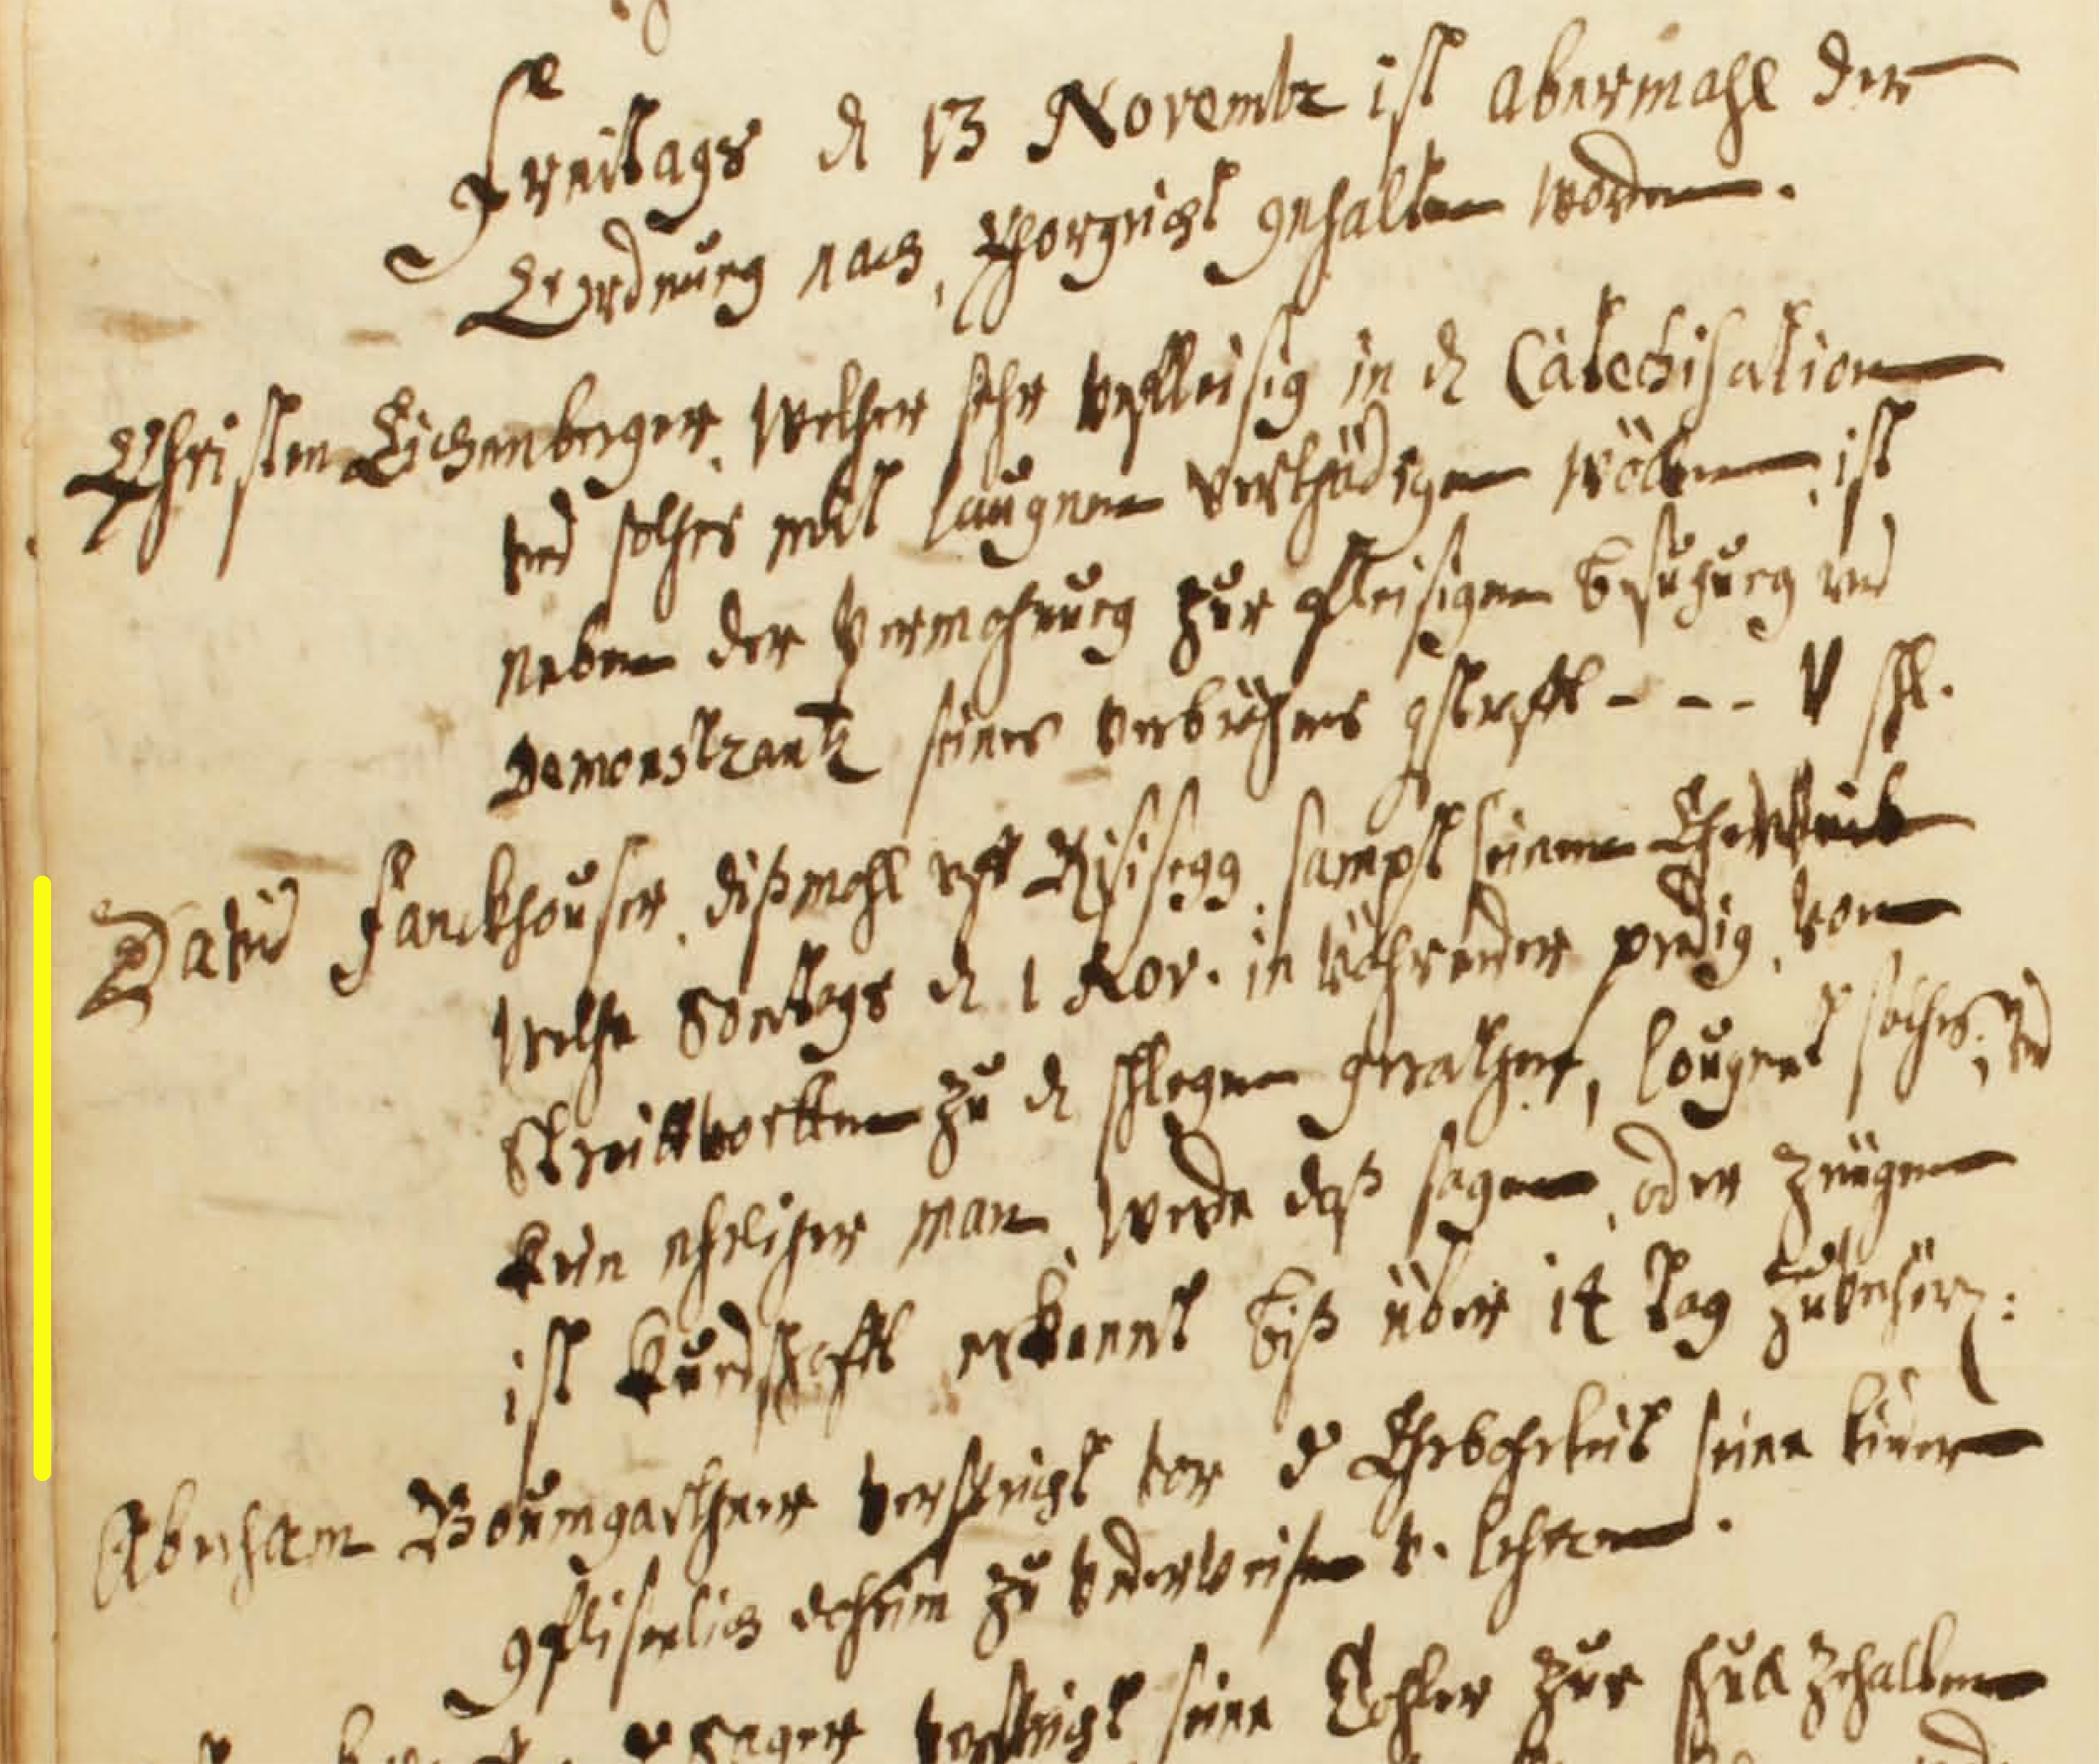 Freitags den 13 Novembr ist abermahl der
Ordnung nach, Chorgricht gehalten worden.
Christen Eichenberger, welcher sehr vnfleisig in den Catechisation
vnd solches mit laugnen verthädigen wöllen, ist
neben der vermahnung zur fleisigen bsuchung vnd
Demonstrantz seines verbrächens gstrafft - - - V ssl.
David Fanckhouser, dißmahl vff Risisegg, sampt seinem Eheweib
welche Sontags den 1 Nov. in währender predig, von
Streittworten zu den schlegen grathen, lougnet solches; vnd
kein ehrlicher man, werde daß sagen, oder zeügen
ist kundschafft erkennt biß über 14 Tag zuverhören:
Abraham Boumgarthner verspricht vor der Ehrbahrkeit seine kinder
gflisenlich daheim zu vnderweisen v. lehren.
verspricht seine Tochter zur schul zehalten